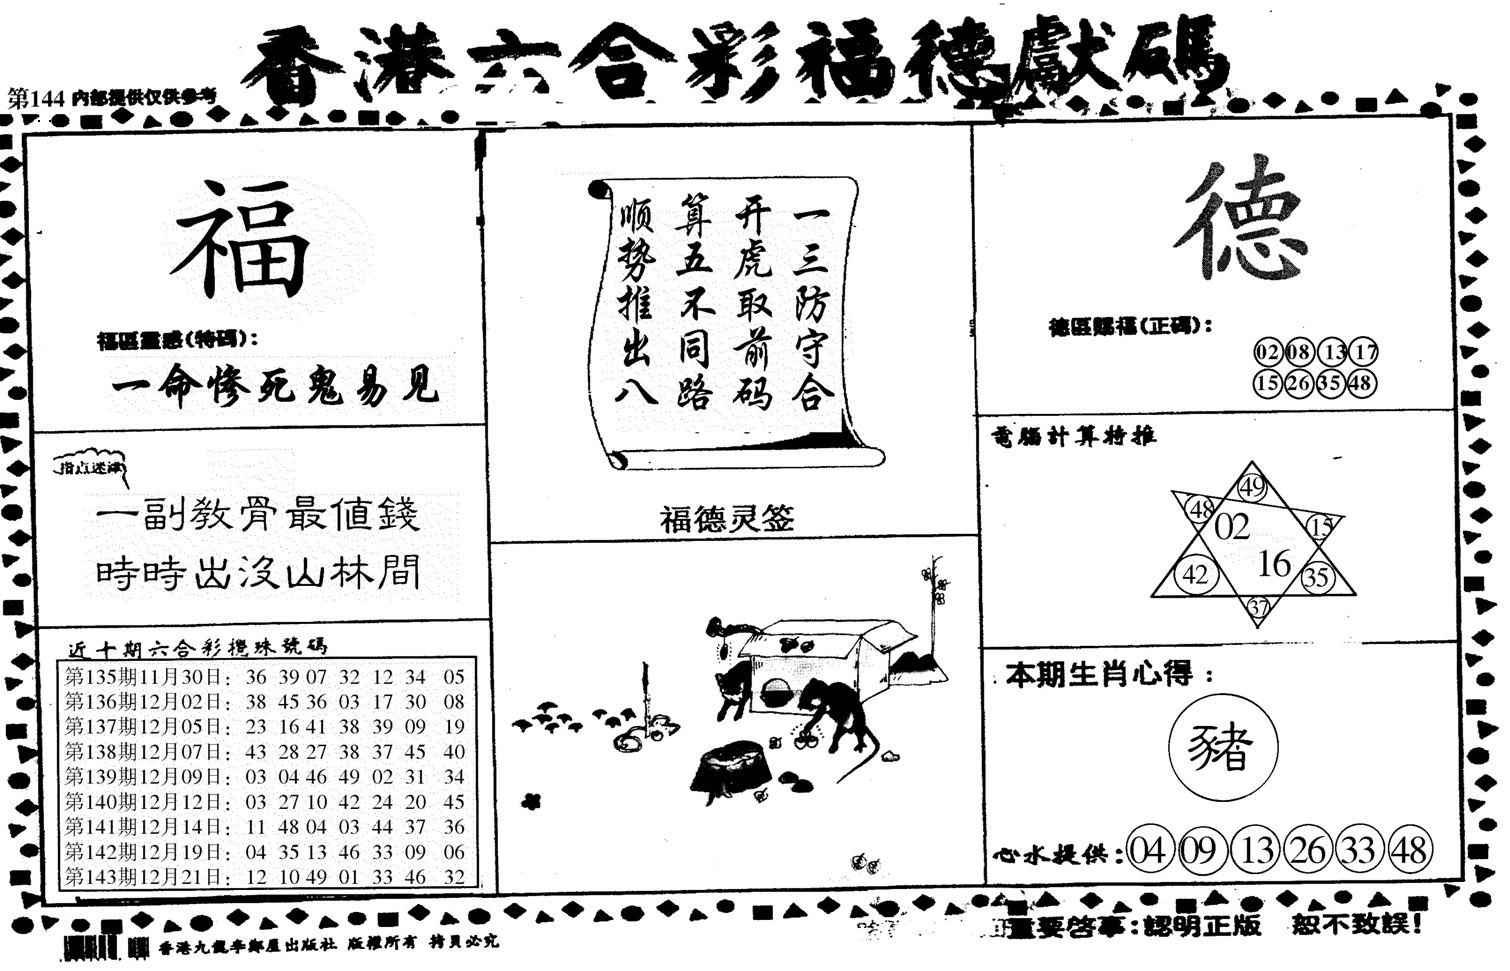 香港六合彩福德獻碼
第144 内部提供仅供参考
福
福區靈感(特碼):
一命惨死鬼易见
指点迷津
一副教骨最值錢
時時出没山林間
近十期六合彩攪珠號碼
第135期11月30日: 36 39 07 32 12 34 05
第136期12月02日: 38 45 36 03 17 30 08
第137期12月05日: 23 16 41 38 39 09 19
第138期12月07日: 43 28 27 38 37 45 40
第139期12月09日: 03 04 46 49 02 31 34
第140期12月12日: 03 27 10 42 24 20 45
第141期12月14日: 11 48 04 03 44 37 36
第142期12月19日: 04 35 13 46 33 09 06
第143期12月21日: 12 10 49 01 33 46 32
一三防守合
开虎取前码
算五不同路
顺势推出八
福德灵签
德
德區賜福(正碼):
02 08 13 17
15 26 35 48
電腦計算特推
49
48 02 15
16
42 35
37
本期生肖心得:
豬
心水提供: 04 09 13 26 33 48
香港九龍李鄭屋出版社 版權所有 拷貝必究
重要啓事:認明正版 恕不致誤!